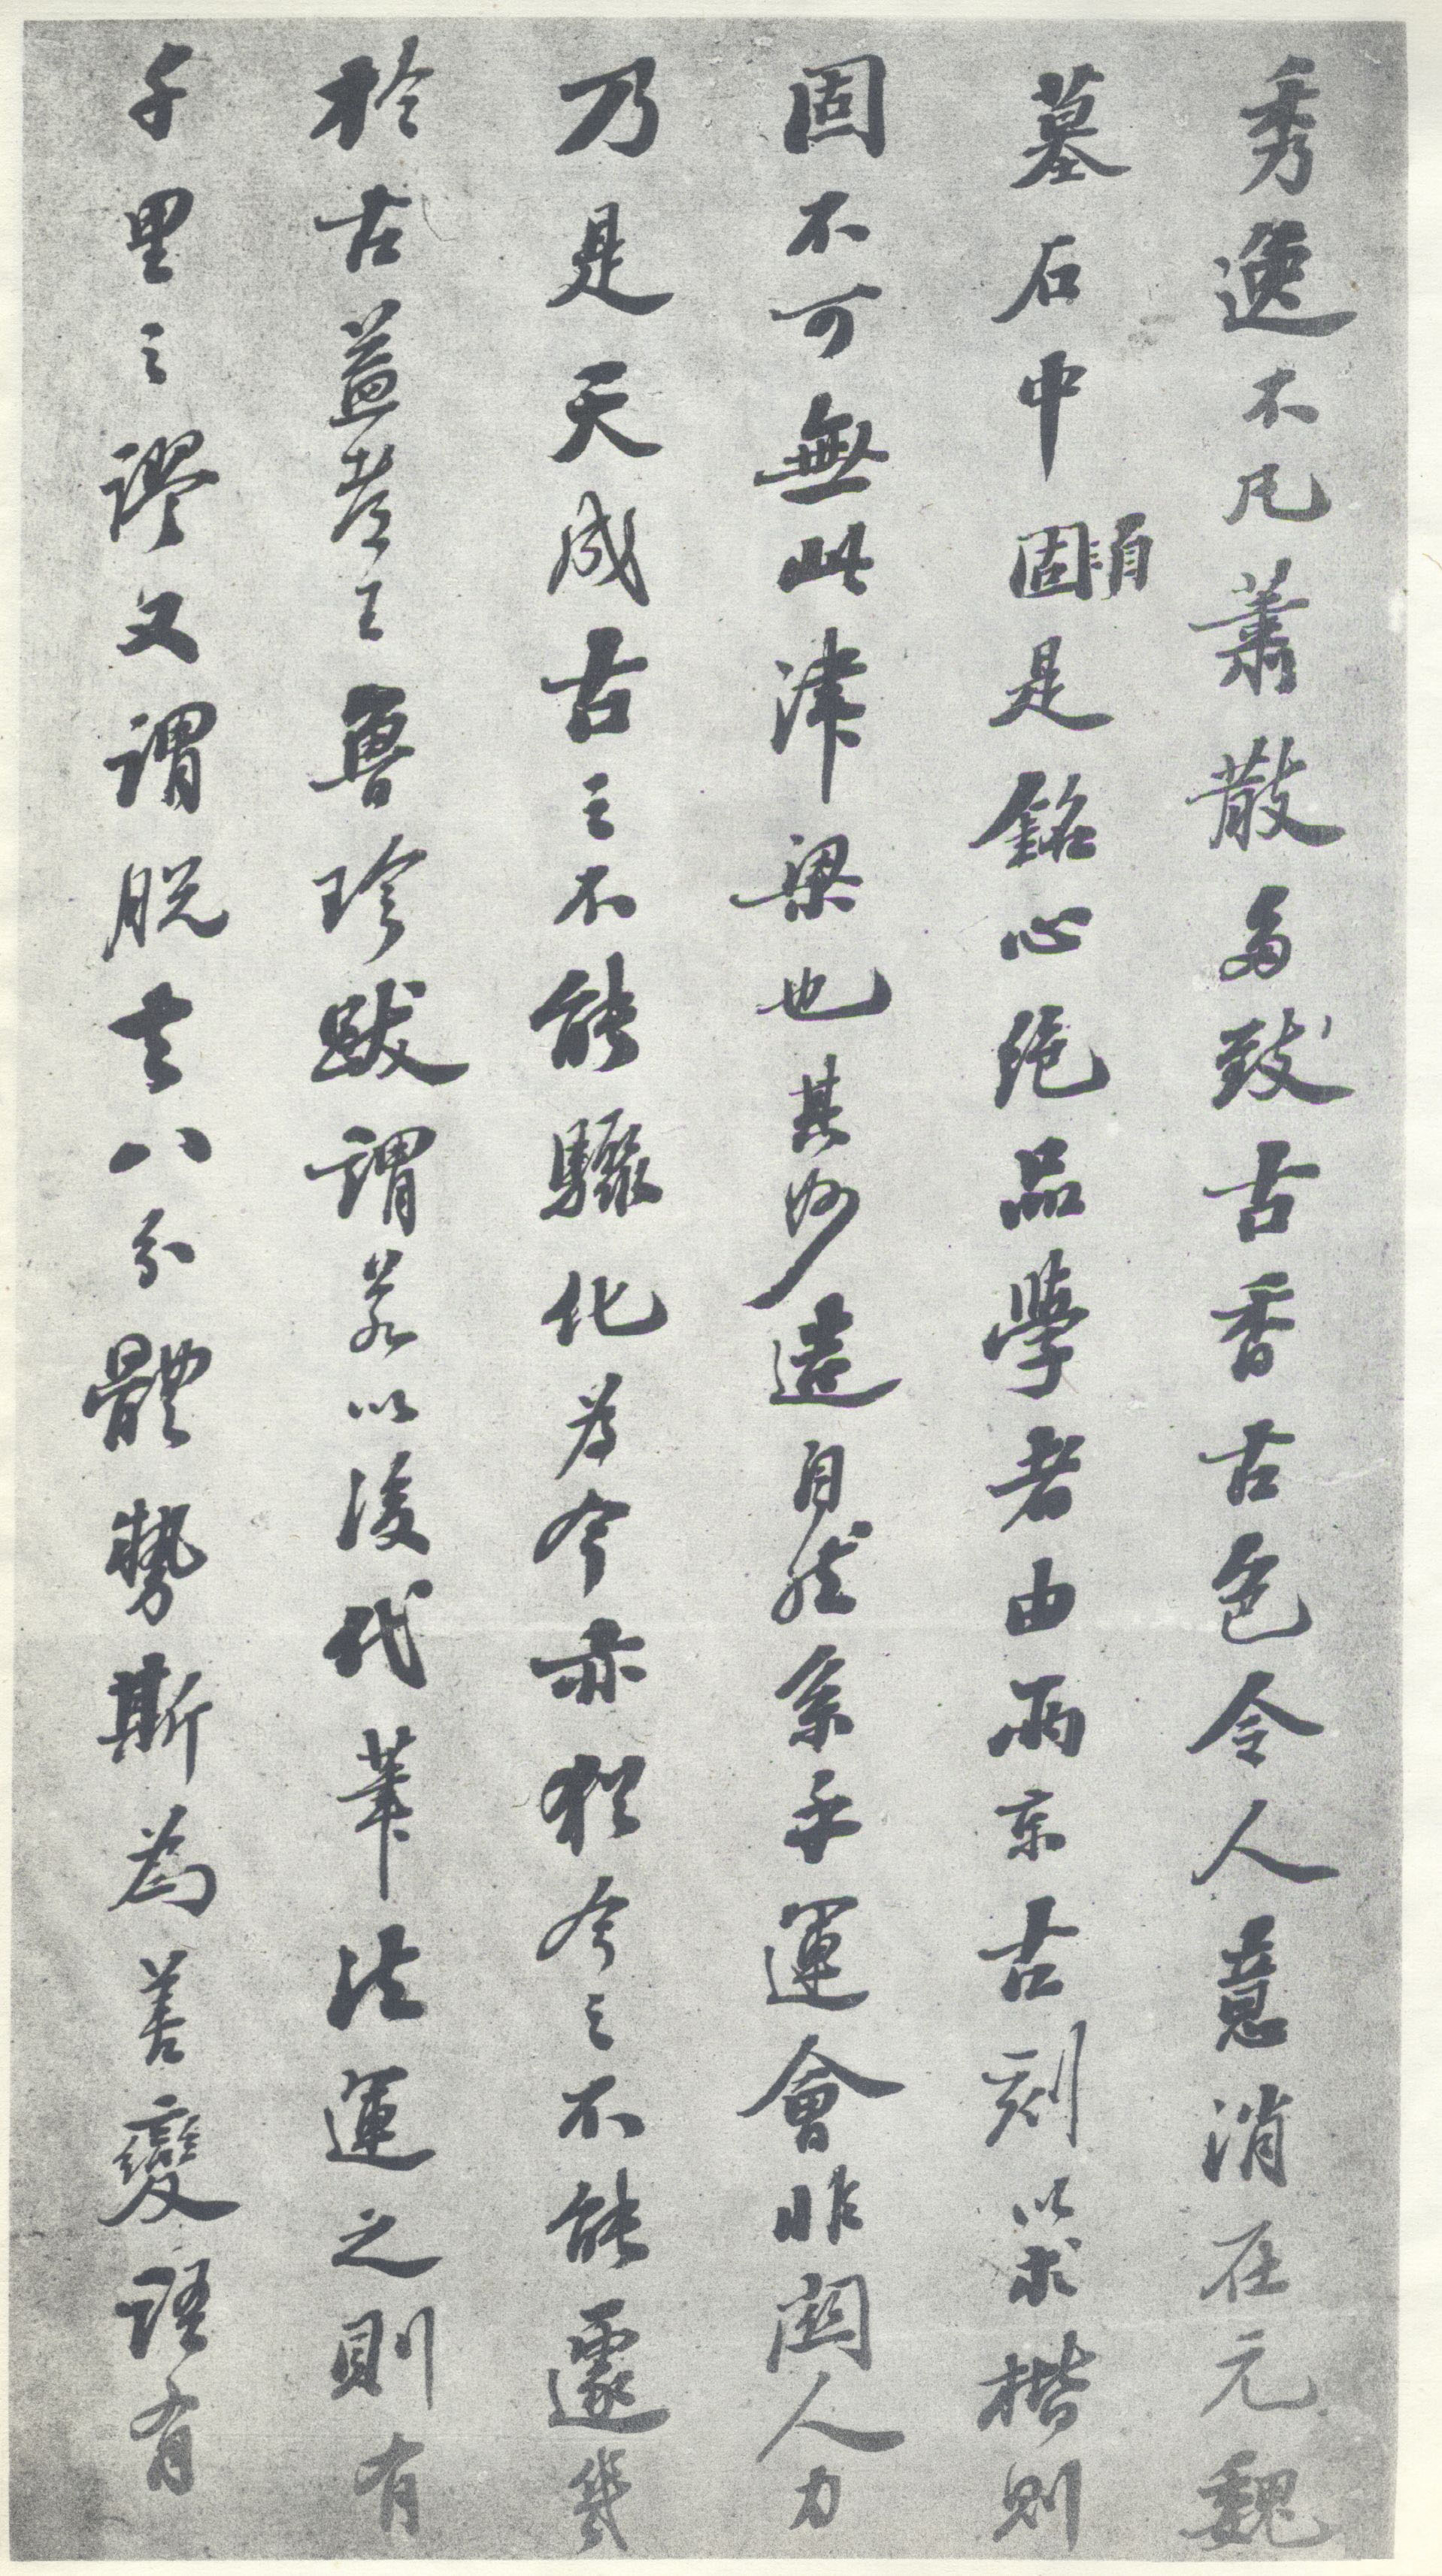 秀逸不凡蕭散多致古香古色令人意消在元魏
墓石中固是銘心絕品學者由兩京古刻以求楷則
固不可無此津梁也其妙造自然系乎運會非關人力
乃是天成古之不能驟化為今亦猶今之不能遽幾
於古蓋王魯珍跋謂若以後代筆法運之則有
千里之謬又謂脫去八分體勢斯為善變語有